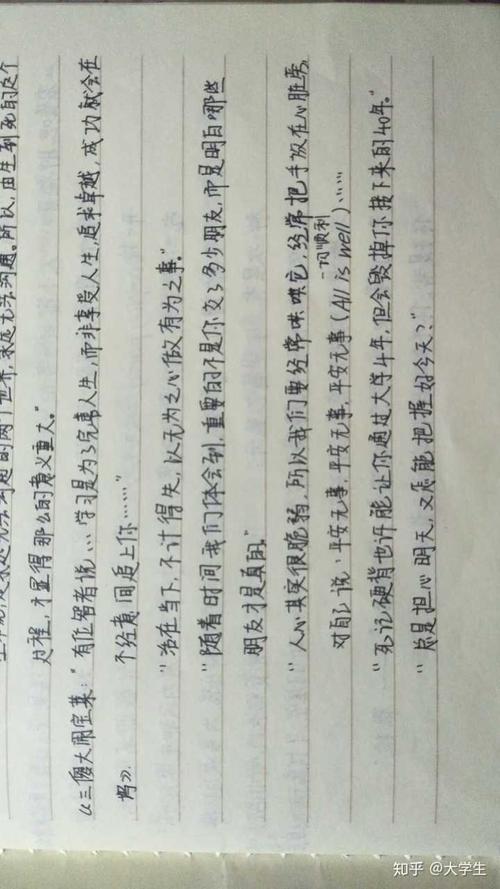 无法沟通的两个世界,永远无法沟通。所以,由生到死的这个
过程,才显得那么的意义重大。"
《三傻大闹宝莱:"有位智者说:学习是为了完善人生,而非享受人生,追求卓越,成功就会在
坞》
不经意间追上你……"
"活在当下,不计得失,以无为之心做有为之事。"
"随着时间我们体会到,重要的不是你交了多少朋友,而是明白哪些
朋友才是真的。"
"人心其实很脆弱,所以我们要经常哄哄它,经常把手放在心脏旁
一切顺利
对自己说:'平安无事,平安无事,平安无事(All is well)……
"死记硬背也许能让你通过大学4年,但会毁掉你接下来的40年。"
"总是担心明天,又怎能把握好今天?"
知乎 @大学生